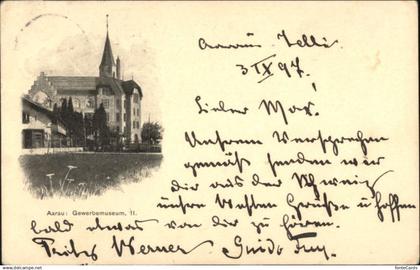 Aarau, Telli
3/IX 97.
Lieber Max.
Unserem Versprechen
gemäss senden wir
Dir aus der Schweiz
unsre Grüsse u hoffen
bald etwas von dir zu hören.
Fritz Werner Guido
Aarau: Gewerbemuseum, II.